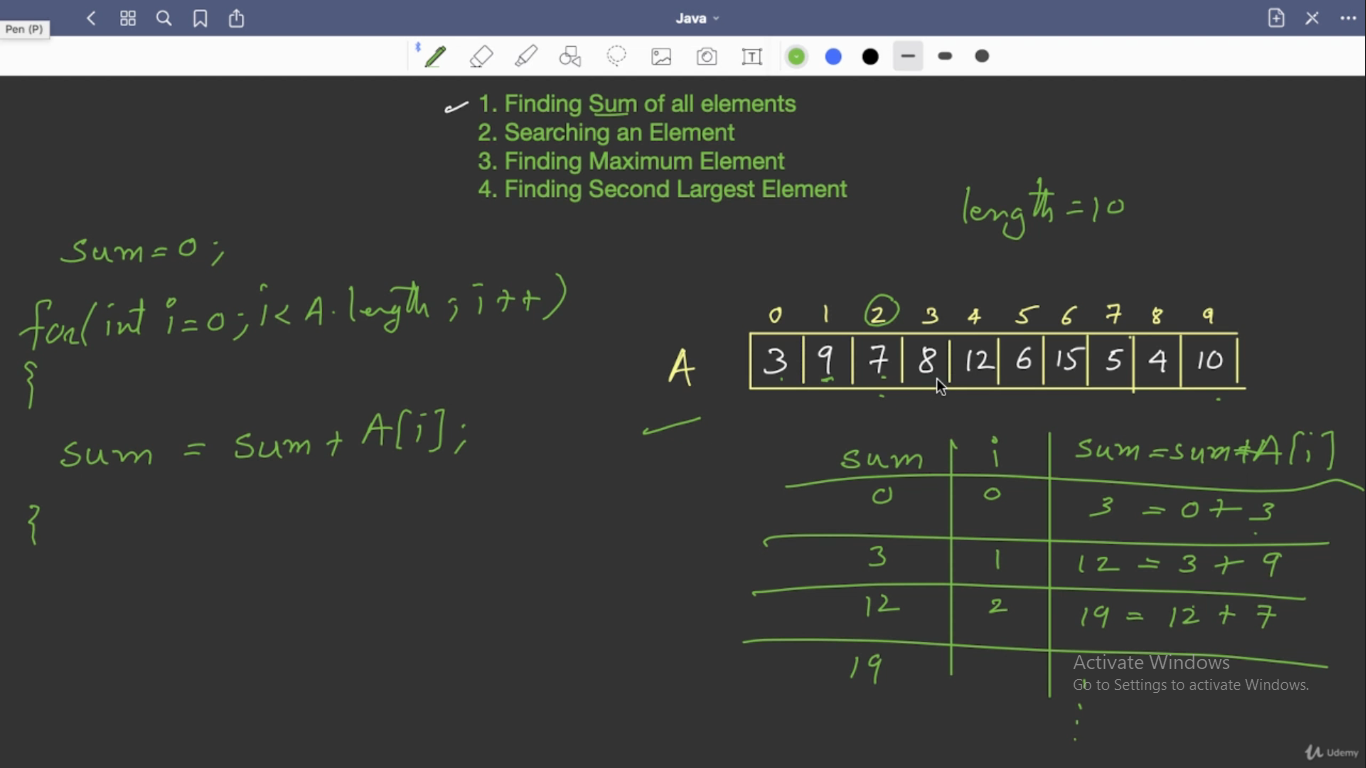 Java
Pen (P)
1. Finding Sum of all elements
2. Searching an Element
3. Finding Maximum Element
4. Finding Second Largest Element
length = 10
sum = 0 ;
for( int i = 0 ; i < A . length ; i++ )
{
sum = sum + A[i] ;
}
0 1 2 3 4 5 6 7 8 9
A 3 9 7 8 12 6 15 5 4 10
sum i sum = sum + A[i]
0 0 3 = 0 + 3
3 1 12 = 3 + 9
12 2 19 = 12 + 7
19
Activate Windows
Go to Settings to activate Windows.
Udemy